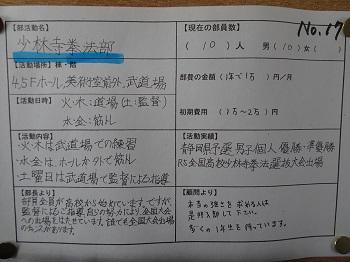 No.17
【部活動名】
少林寺拳法部
【活動場所】棟・階
4,5Fホール,美術室前外,武道場
【活動日時】
火・木:道場(土:監督)
水・金:筋トレ
【活動内容】
・火・木は武道場での練習
・水・金は、ホールか外で筋トレ
・土曜日は武道場で監督による指導
【部長より】
部員全員が高校から始めています。ですが、
監督によるご指導、自らの努力により、全国大会
への出場をはたせています。誰でも全国大会出場
のチャンスがあります。
【現在の部員数】
(10)人 男(10)女( )
部費の金額(1年で1万)円/月
初期費用(1万~2万)円
【活動実績】
静岡県予選 男子個人 優勝・準優勝
R5全国高校少林寺拳法選抜大会出場
【顧問より】
本当の強さを求める人は
是非入部して下さい。
多くの1年生を待っています。